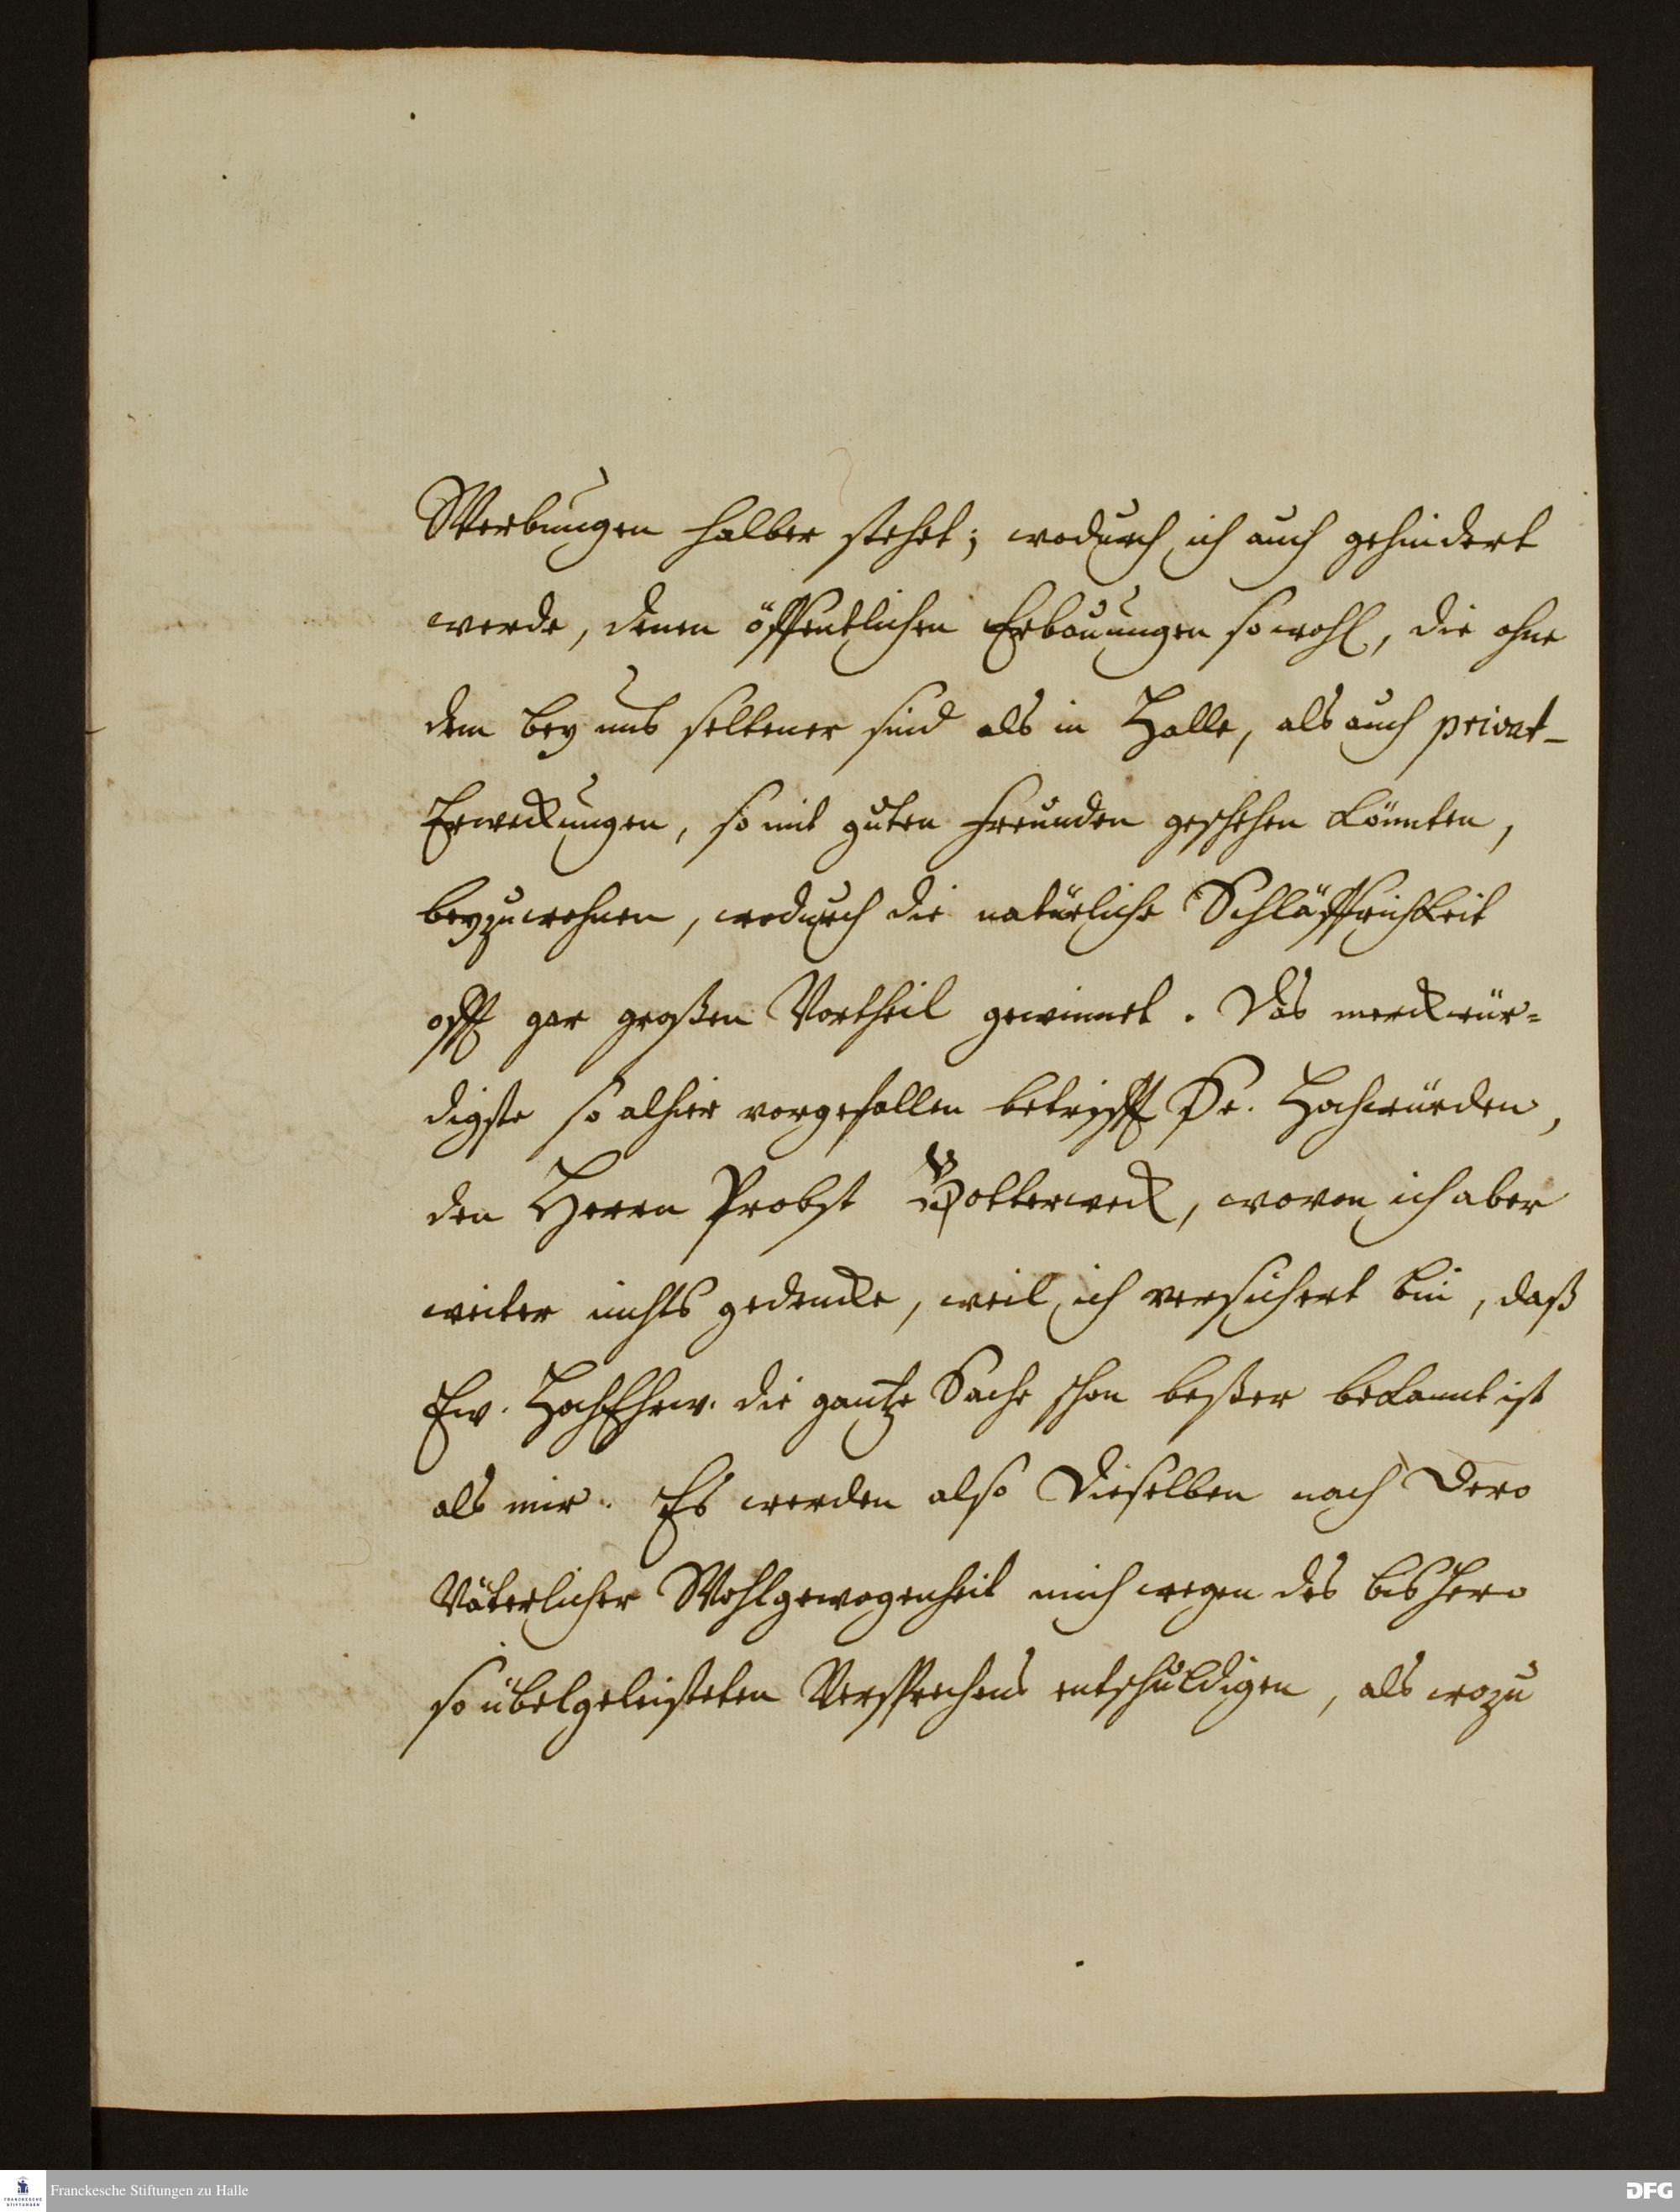 Werbungen halber stehet; wodurch ich auch gehindert
werde, denen öffentlichen Erbauungen sowohl, die ohne
dem bey uns seltener sind als in Halle, als auch privat-
Erweckungen, so mit guten Freunden geschehen könnten,
beyzuwohnen, wodurch die natürliche Schläffrichkeit
offt gar großen Vortheil gewinnet. Das merckwür=
digste so alhier vorgefallen betrifft Se. Hochwürden,
den Herrn Probst Botterweck, wovon ich aber
weiter nichts gedencke, weil ich versichert bin, daß
Ew. HochEhrw. die gantze Sache schon beßer bekannt ist
als mir. Es werden also Dieselben nach Dero
Väterlicher Wohlgewogenheit mich wegen des bishero
so übelgeleisteten Versprechens entschuldigen, als wozu
Franckesche Stiftungen zu Halle
FRANCKESCHE
STIFTUNGEN
DFG